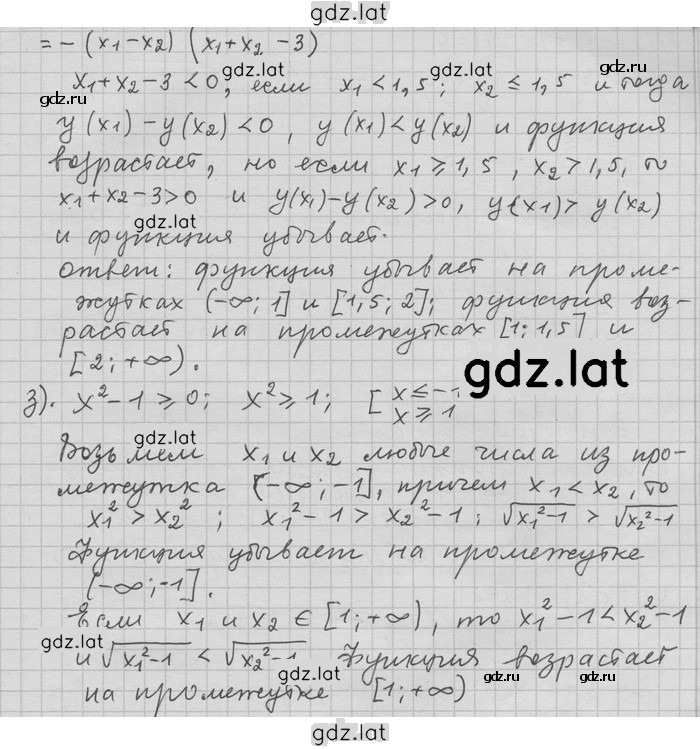 gdz.lat
= - (x₁-x₂) (x₁+x₂ -3)
gdz.lat
gdz.lat
x₁+x₂-3 <0, если x₁ <1,5; x₂ ≤ 1,5 и тогда
y(x₁) - y(x₂) <0, y(x₁)<y(x₂) и функция
gdz.lat
возрастает, но если x₁ ⩾ 1,5, x₂ > 1,5, то
x₁+x₂-3>0 и y(x₁)-y(x₂)>0, y(x₁)> y(x₂)
gdz.lat
и функция убывает.
ответ: функция убывает на проме-
жутках (-∞; 1] и [1,5; 2]; функция воз-
растает на промежутках [1; 1,5] и
[2; +∞).
gdz.lat
з). x²-1 ⩾ 0; x² ⩾ 1; [ x ≤ -1
x ⩾ 1
gdz.lat
Возьмем x₁ и x₂ любые числа из про-
межутка (-∞; -1], причем x₁ < x₂, то
x₁² > x₂²; x₁²-1 > x₂²-1; √x₁²-1 > √x₂²-1
Функция убывает на промежутке
(-∞; -1].
Если x₁ и x₂ ∈ [1; +∞), то x₁²-1 < x₂²-1
gdz.lat
и √x₁²-1 < √x₂²-1 Функция возрастает
gdz.lat
gdz.lat
на промежутке [1; +∞)
gdz.lat